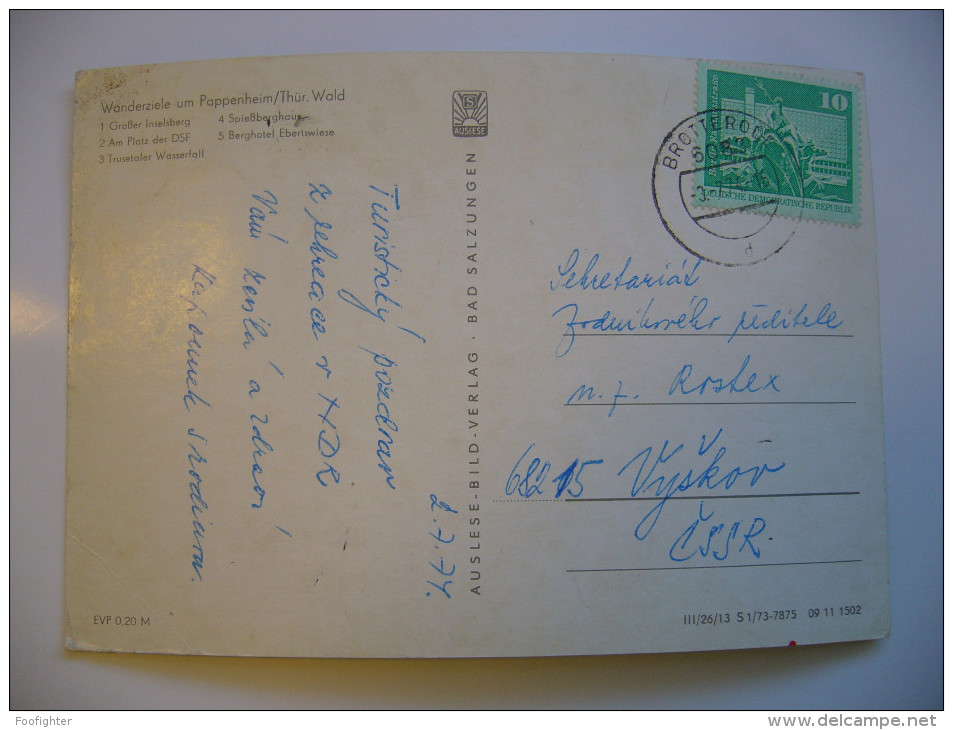 Wanderziele um Pappenheim/Thür. Wald
1 Großer Inselsberg
2 Am Platz der DSF
3 Trusetaler Wasserfall
4 Spießberghaus
5 Berghotel Ebertswiese
AUSLESE
2.7.74.
Turistický pozdrav
z rekreace v NDR
Vám zasílá a zdraví
s rodinou.
EVP 0.20 M
AUSLESE-BILD-VERLAG · BAD SALZUNGEN
10
DEUTSCHE DEMOKRATISCHE REPUBLIK
BROTTERODE
Sekretariát
Podnikového ředitele
n. p. Rostex
682 15 Vyškov
ČSSR.
III/26/13 S 1/73-7875 09 11 1502
Foofighter
www.delcampe.net